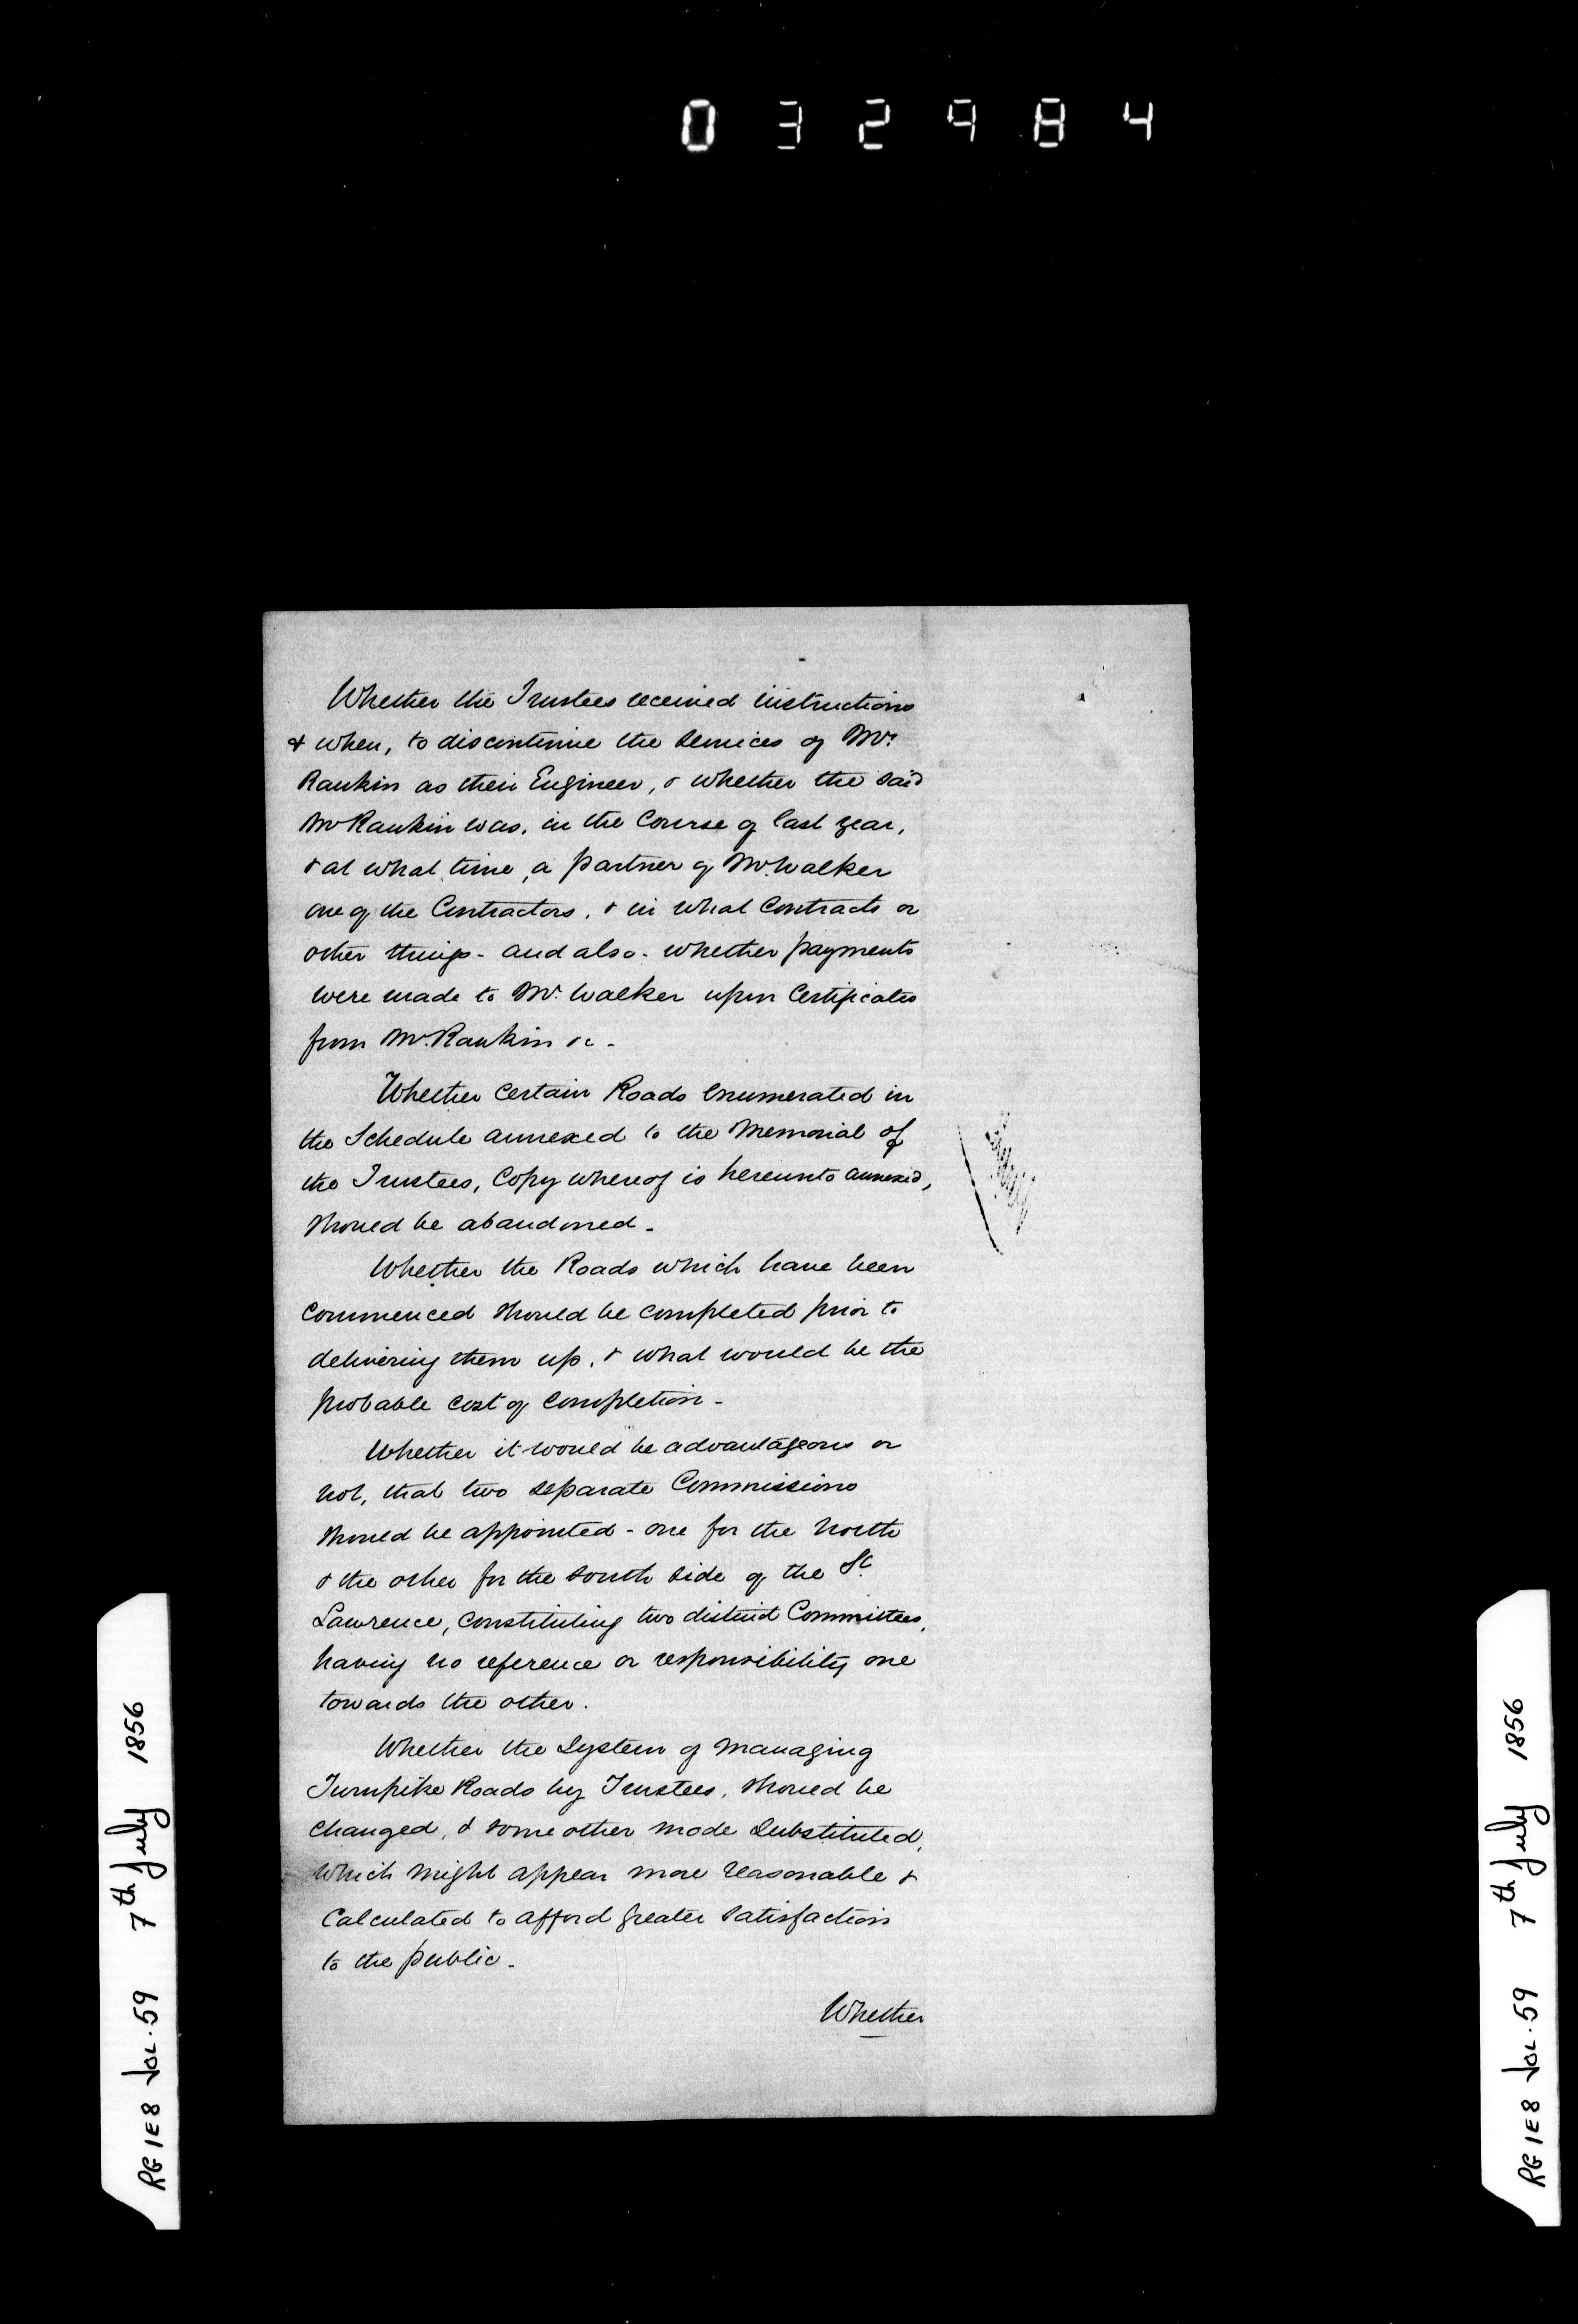 032984
Whether the Trustees received instructions
& when, to discontinue the services of Mr.
Rankin as their Engineer, & whether the said
Mr Rankin was, in the Course of last year,
& at what time, a partner of Mr. Walker
one of the Contractors, & in what Contracts or
other things - and also - whether payments
were made to Mr. Walker upon Certificates
from Mr. Rankin &c -
Whether certain Roads enumerated in
the Schedule annexed to the Memorial of
the Trustees, Copy whereof is hereunto annexed,
should be abandoned -
Whether the Roads which have been
commenced should be completed prior to
delivering them up, & what would be the
probable cost of completion -
Whether it would be advantageous or
not, that two separate Commissions
should be appointed - one for the North
& the other for the South side of the St.
Lawrence, constituting two distinct Committees,
having no reference or responsibility one
towards the other.
Whether the System of managing
Turnpike Roads by Trustees, should be
changed, & some other mode Substituted,
which might appear more reasonable &
Calculated to afford greater satisfaction
to the public -
Whether
RG 1E8 VOL. 59 7th July 1856
RG 1E8 VOL. 59 7th July 1856